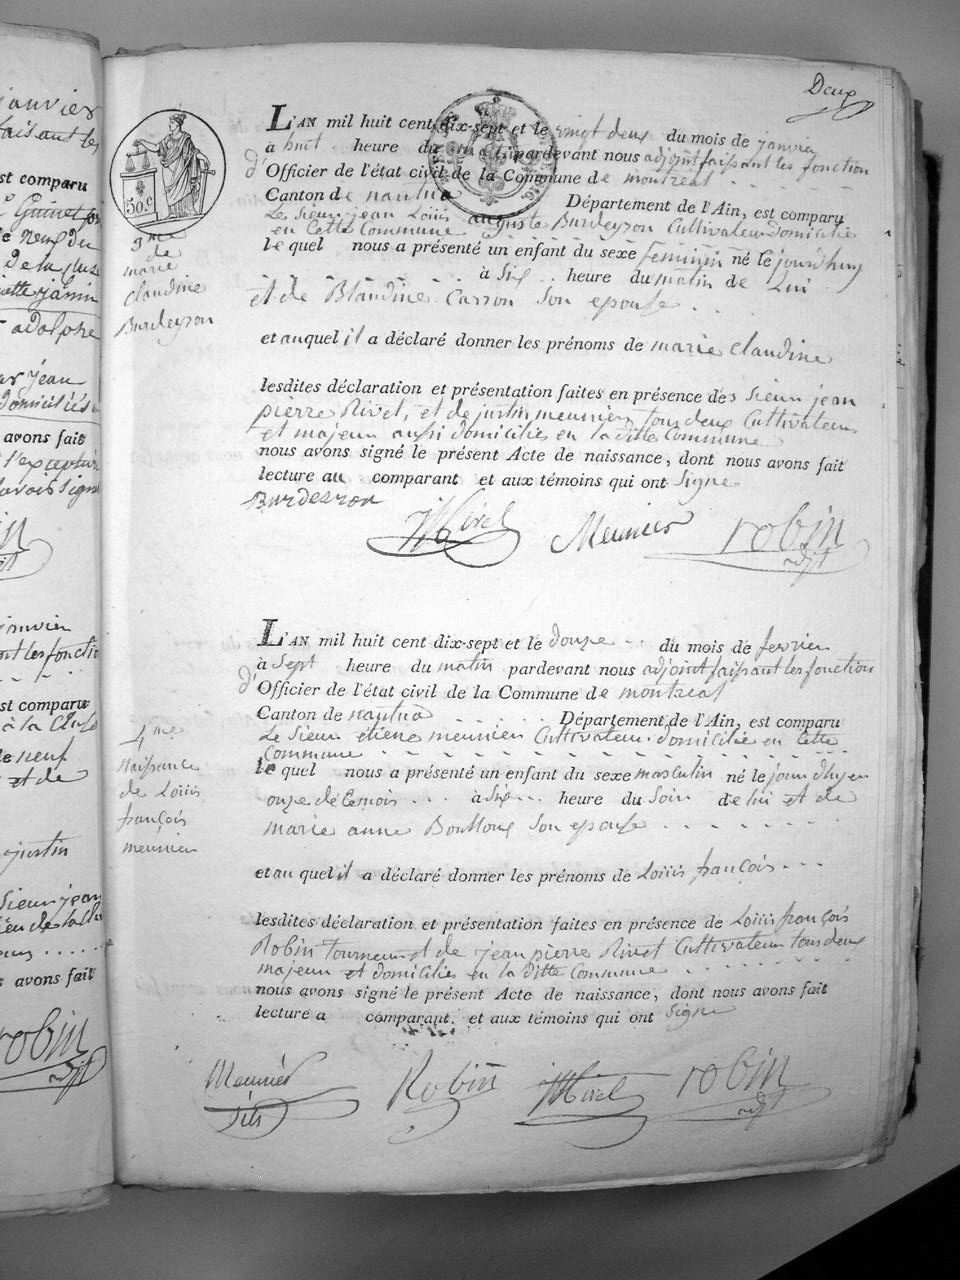 Deux
50.c
3me
de
marie
claudine
Burdeyron
L'AN mil huit cent dix-sept et le vingt deux du mois de janvier
à huit heure du matin pardevant nous adjoint faisant les fonction
d'Officier de l'état civil de la Commune de montreal
Canton de nantua Département de l'Ain, est comparu
Le Sieur jean Loüis auguste Burdeyron Cultivateur domicilié
en Cette Commune
le quel nous a présenté un enfant du sexe feminin né le jourdhuy
à Six heure du matin de Lui
et de Blandine Carron Son epouse
et auquel il a déclaré donner les prénoms de marie claudine
lesdites déclaration et présentation faites en présence des Sieur jean
pierre Rivet, et de justin meunier tous deux Cultivateur
et majeur aussi domiciliés en la ditte Commune
nous avons signé le présent Acte de naissance, dont nous avons fait
lecture au comparant et aux témoins qui ont Signe
Burdesron
Meunier robin
adjt
4me
naissance
de Loüis
françois
meunier
L'AN mil huit cent dix-sept et le douze du mois de fevrier
à Sept heure du matin pardevant nous adjoint faissant les fonction
d'Officier de l'état civil de la Commune de montreal
Canton de nantua Département de l'Ain, est comparu
Le Sieur etiene meunier Cultivateur domicilié en Cette
Commune
le quel nous a présenté un enfant du sexe masculin né le jour dhyer
onze de Cemois à Six heure du Soir de lui et de
marie anne Son epouse
et au quel il a déclaré donner les prénoms de Loüis françois
lesdites déclaration et présentation faites en présence de Loüis françois
Robin tourneur et de jean pierre Rivet Cultivateur tous deux
majeur et domicilies en la ditte Commune
nous avons signé le présent Acte de naissance, dont nous avons fait
lecture a comparant, et aux témoins qui ont Signe
Meunier Robin robin
fils adjt